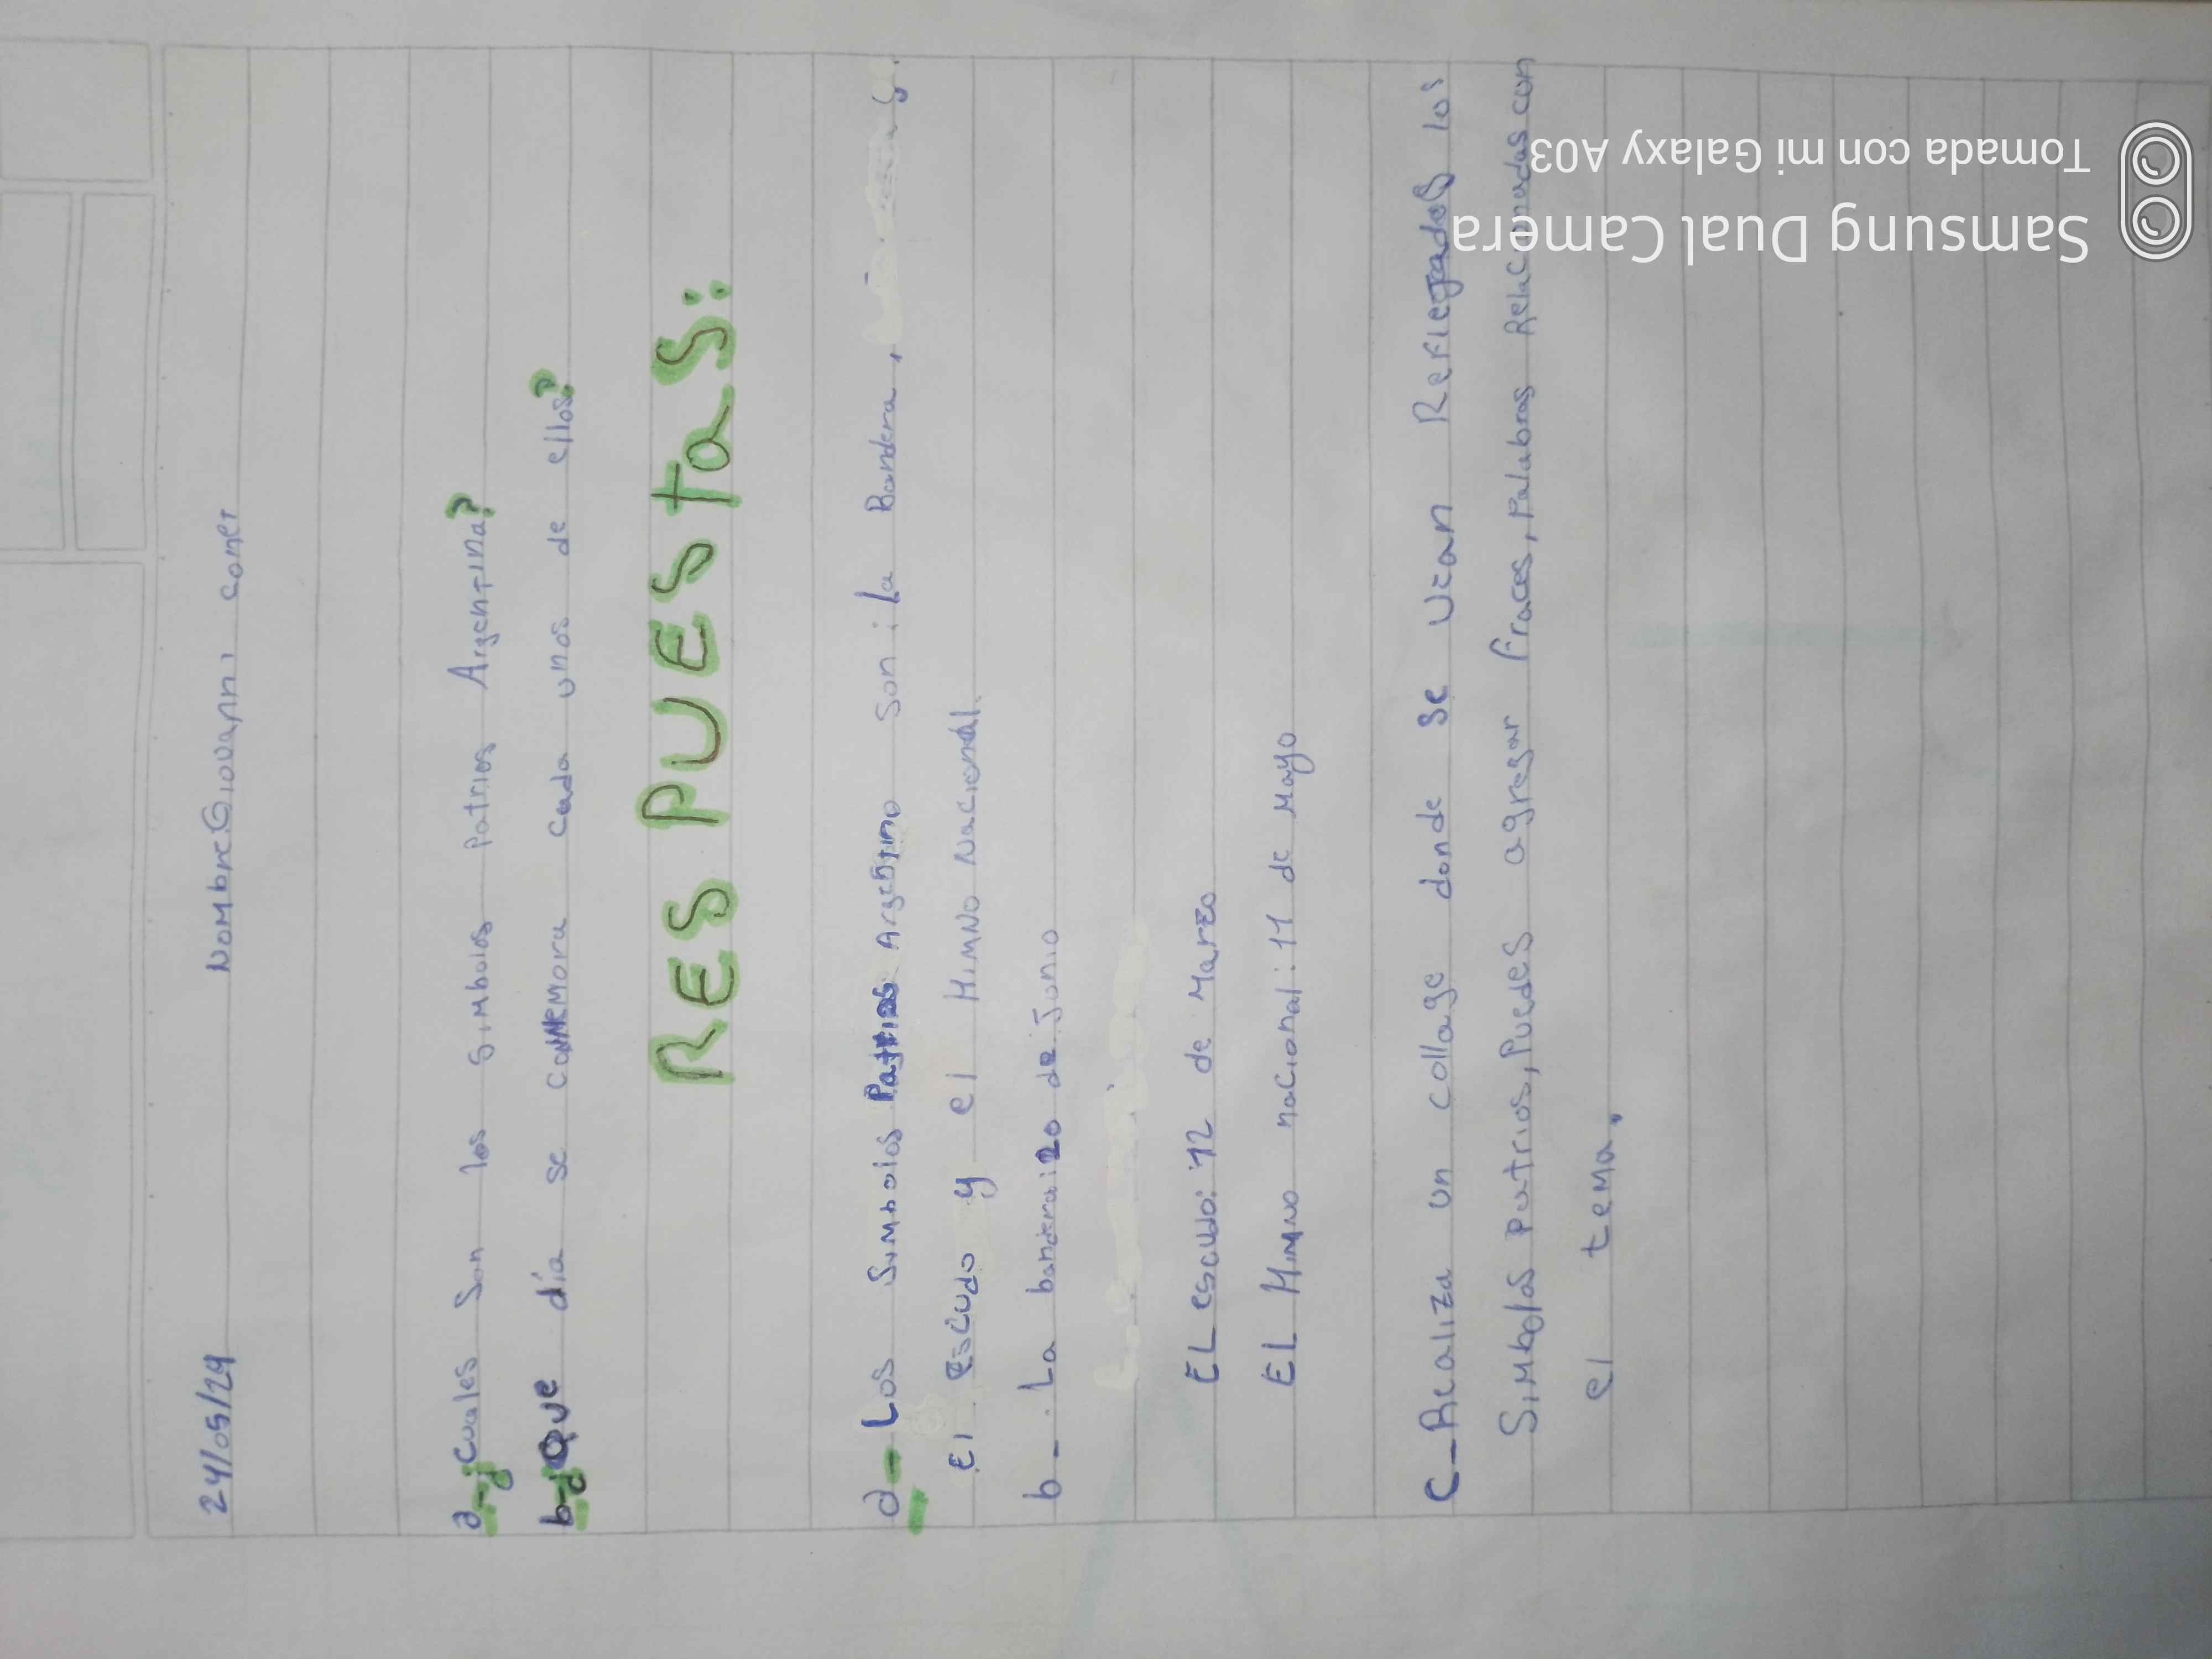 24/05/24 Nombre:Giovanni comet
a-¿Cuales son los simbolos Patrios Argentina?
b-¿Que día se conmemora cada unos de ellos?
RESPUESTAS:
a- Los Simbolos Patrios Argentino son: la Bandera,
El escudo y el Himno Nacional.
b-. La bandera:20 de Junio
EL escudo: 12 de Marzo
EL Himno nacional:11 de Mayo
C-Realiza un collage donde se vean Reflegados los
Simbolos patrios, Puedes agregar fraces, Palabras Relacionadas con
el tema.
Samsung Dual Camera
Tomada con mi Galaxy A03